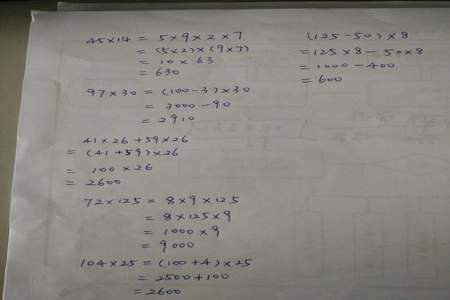 45×14 = 5×9×2×7
= (5×2)×(9×7)
= 10 × 63
= 630
97×30 = (100-3)×30
= 3000 - 90
= 2910
41×26+59×26
= (41+59)×26
= 100×26
= 2600
72×125 = 8×9×125
= 8×125×9
= 1000×9
= 9000
104×25 = (100+4)×25
= 2500+100
= 2600
(125-50)×8
= 125×8-50×8
= 1000-400
= 600